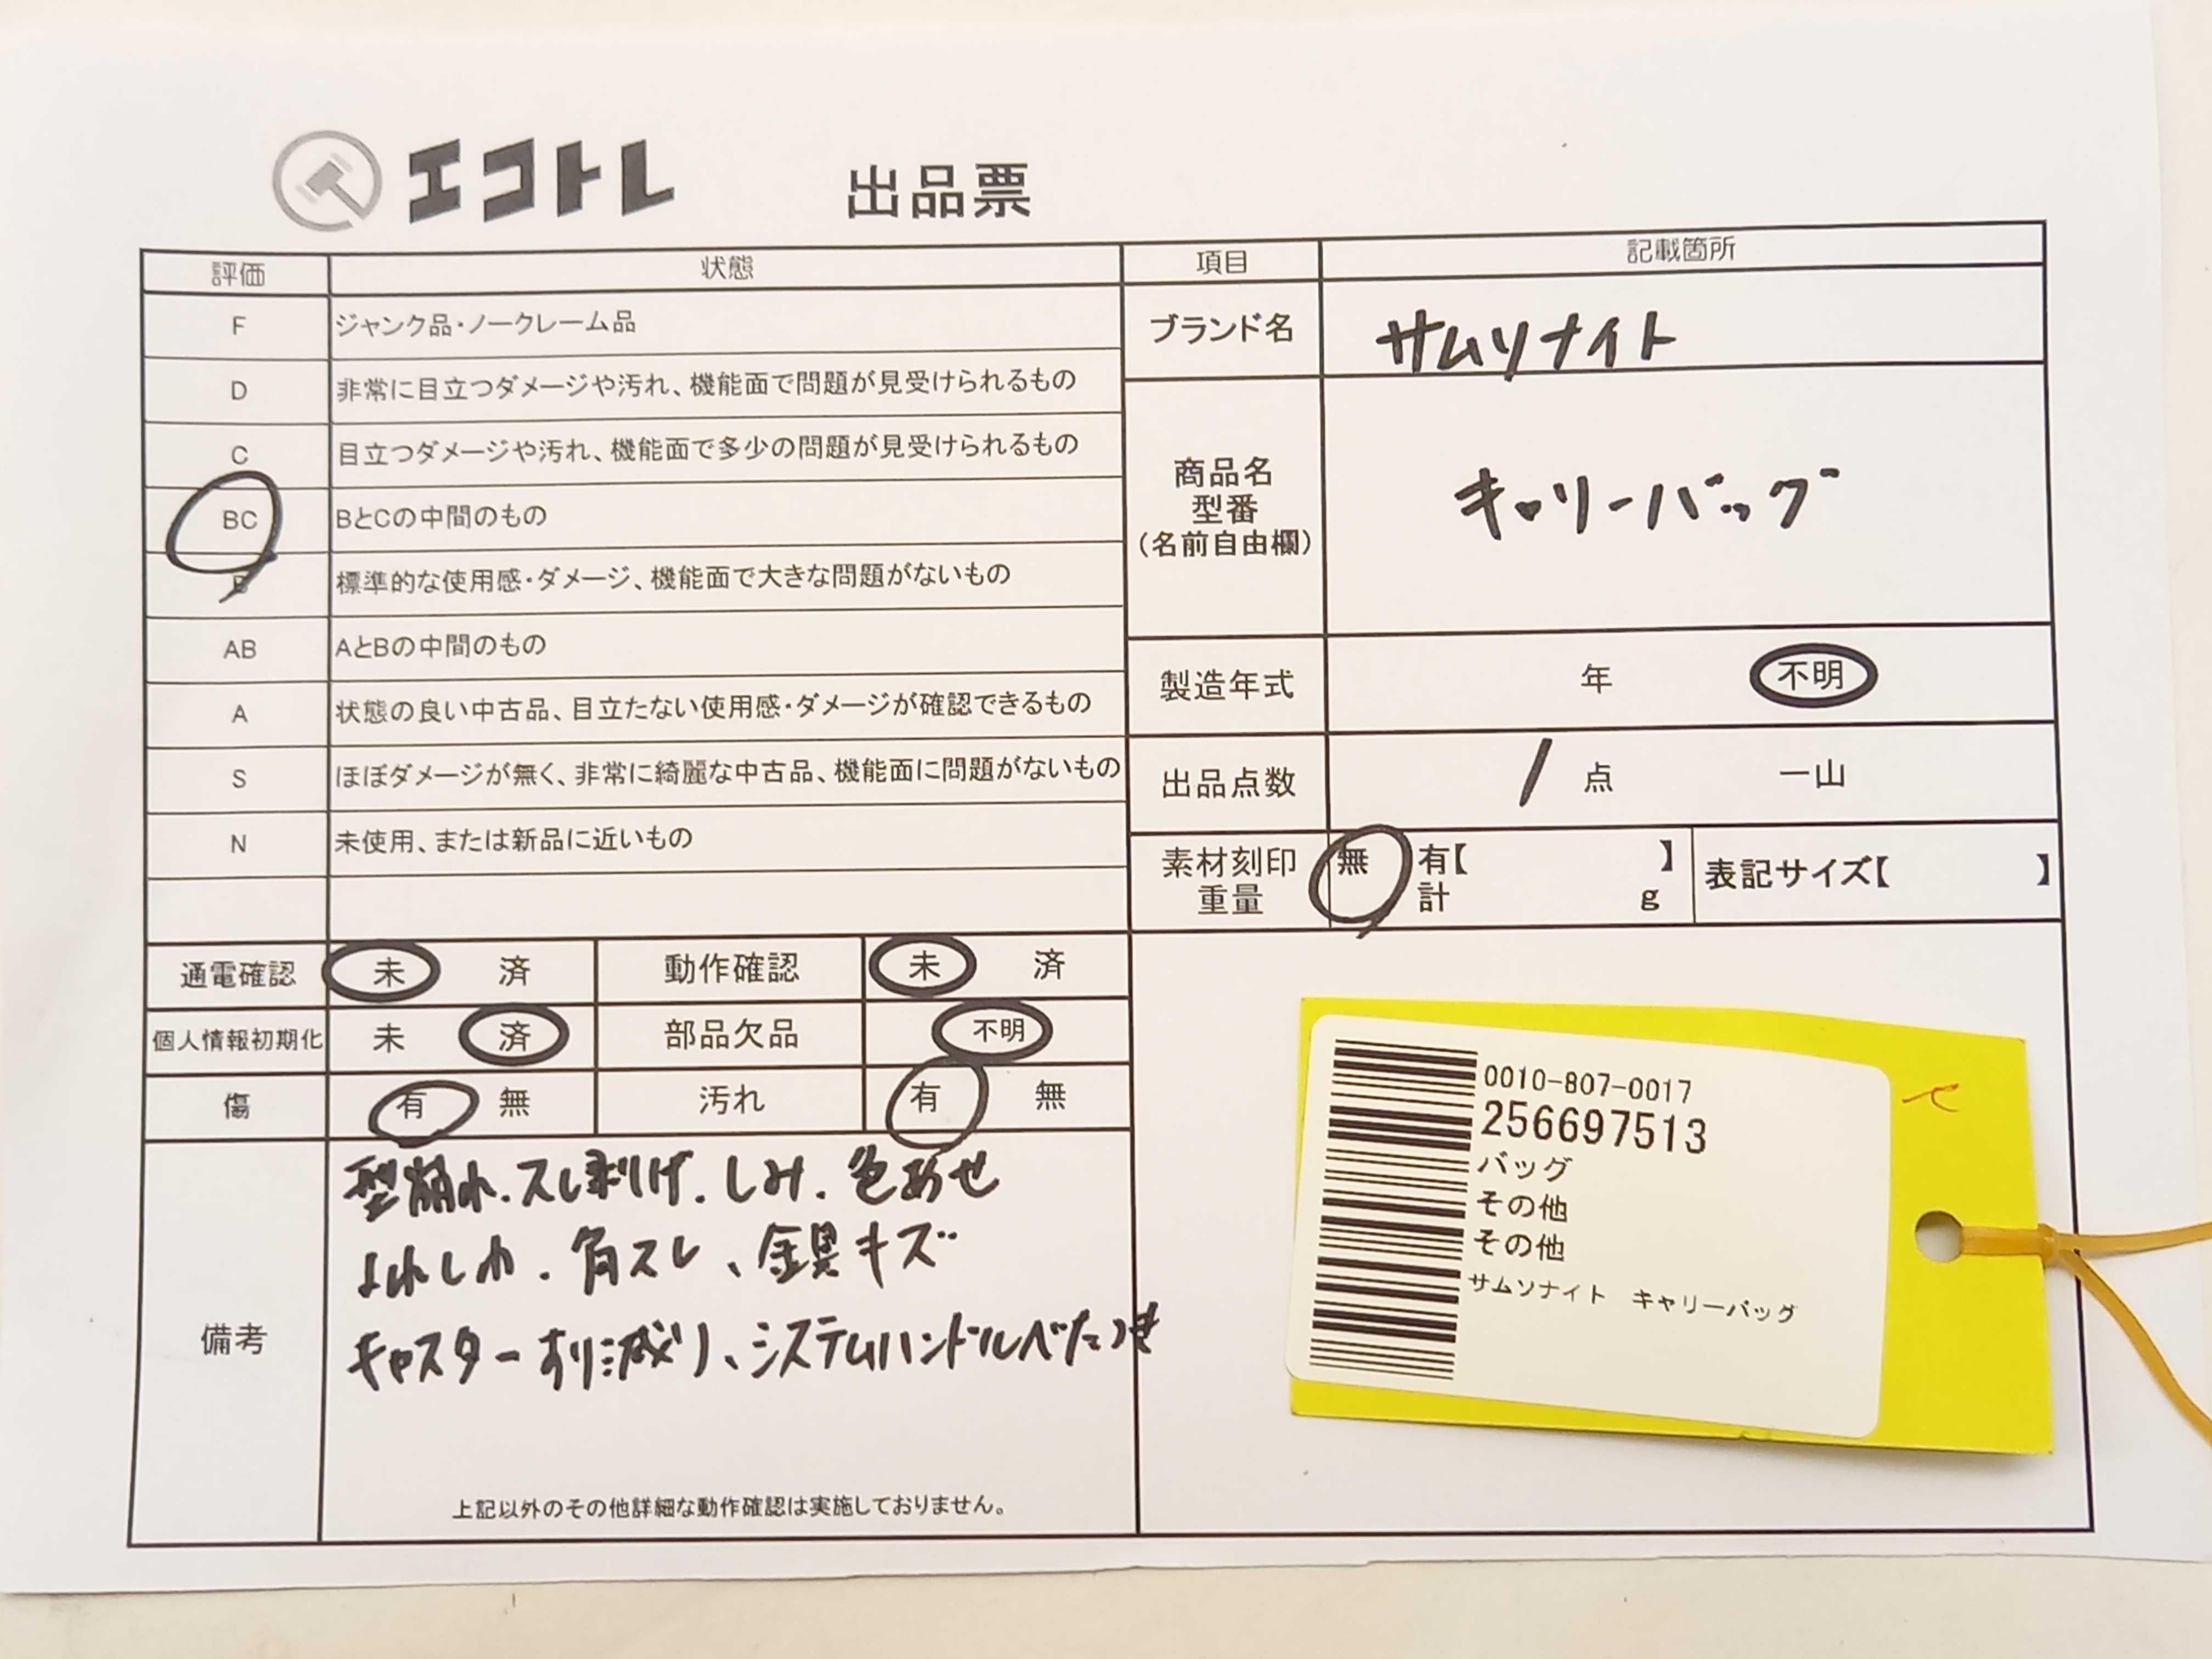 エコトレ 出品票
評価 状態
F ジャンク品・ノークレーム品
D 非常に目立つダメージや汚れ、機能面で問題が見受けられるもの
C 目立つダメージや汚れ、機能面で多少の問題が見受けられるもの
BC BとCの中間のもの
B 標準的な使用感・ダメージ、機能面で大きな問題がないもの
AB AとBの中間のもの
A 状態の良い中古品、目立たない使用感・ダメージが確認できるもの
S ほぼダメージが無く、非常に綺麗な中古品、機能面に問題がないもの
N 未使用、または新品に近いもの
通電確認 未 済 動作確認 未 済
個人情報初期化 未 済 部品欠品 不明
傷 有 無 汚れ 有 無
備考
型崩れ.スレ剥げ.しみ.色あせ
よれしわ.角スレ、金具キズ
キャスターすり減り、システムハンドルべたつき
上記以外のその他詳細な動作確認は実施しておりません。
項目 記載箇所
ブランド名 サムソナイト
商品名
型番
(名前自由欄)
キャリーバッグ
製造年式 年 不明
出品点数 1 点 一山
素材刻印 無 有【 】 表記サイズ【 】
重量 計 g
0010-807-0017
256697513
バッグ
その他
その他
サムソナイト キャリーバッグ